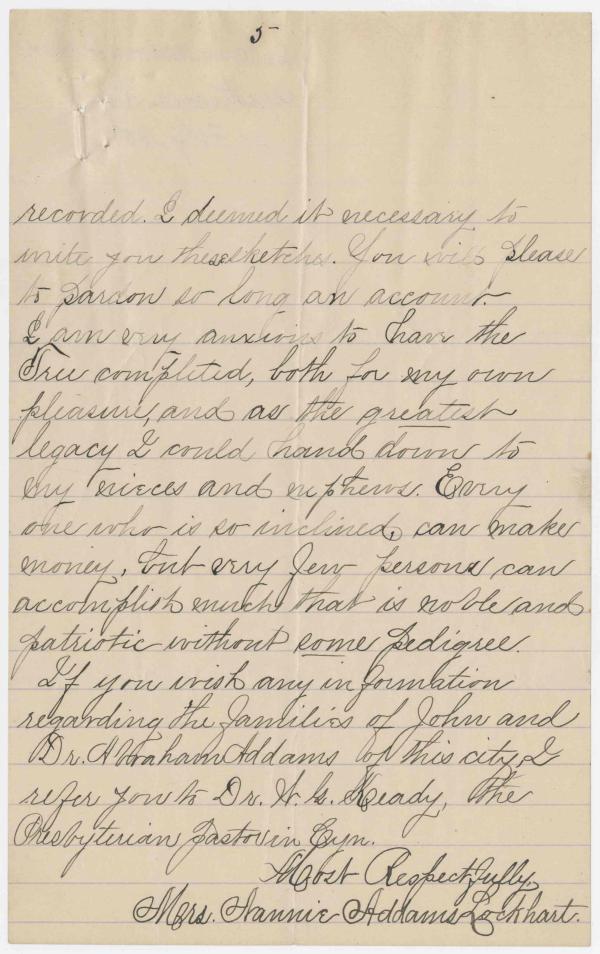 5
recorded. I deemed it necessary to
write you these sketches. You will please
to pardon so long an account.
I am very anxious to have the
Tree completed, both for my own
pleasure, and as the greatest
legacy I could hand down to
my nieces and nephews. Every
one who is so inclined, can make
money, but very few persons can
accomplish much that is noble and
patriotic without some pedigree.
If you wish any information
regarding the families of John and
Dr. Abraham Addams of this city, I
refer you to Dr. W. G. Keady, the
Presbyterian Pastor in
Most Respectfully,
Mrs. Nannie Addams Lockhart.